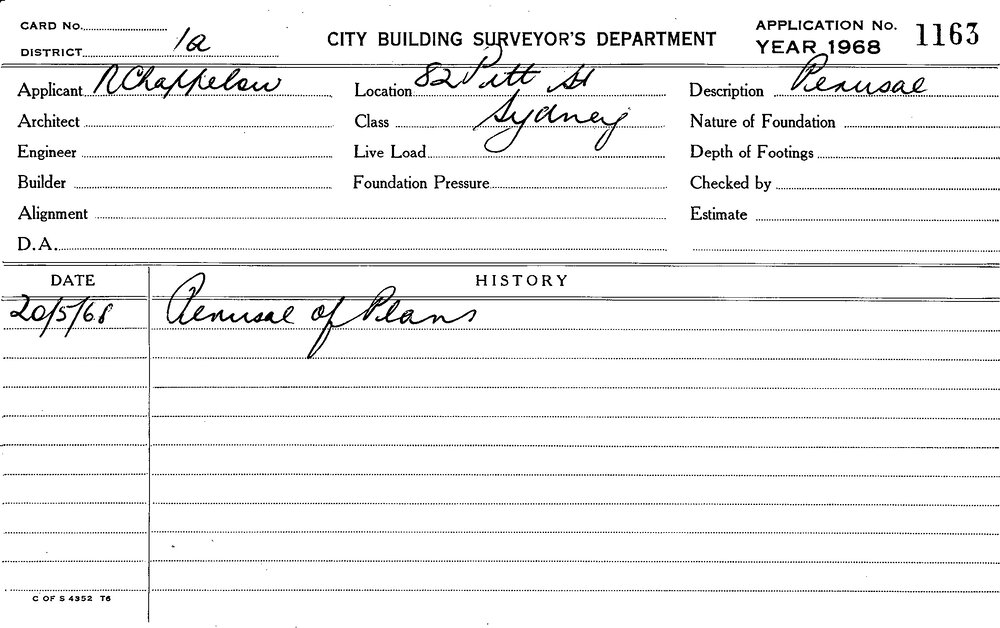 CARD No.
DISTRICT 1a
CITY BUILDING SURVEYOR'S DEPARTMENT
APPLICATION No. 1163
YEAR 1968
Applicant R Chappelow
Location 82 Pitt St
Description Perusal
Architect
Class Sydney
Nature of Foundation
Engineer
Live Load
Depth of Footings
Builder
Foundation Pressure
Checked by
Alignment
Estimate
D.A.
DATE HISTORY
20/5/68 Perusal of Plans
C OF S 4352 T6